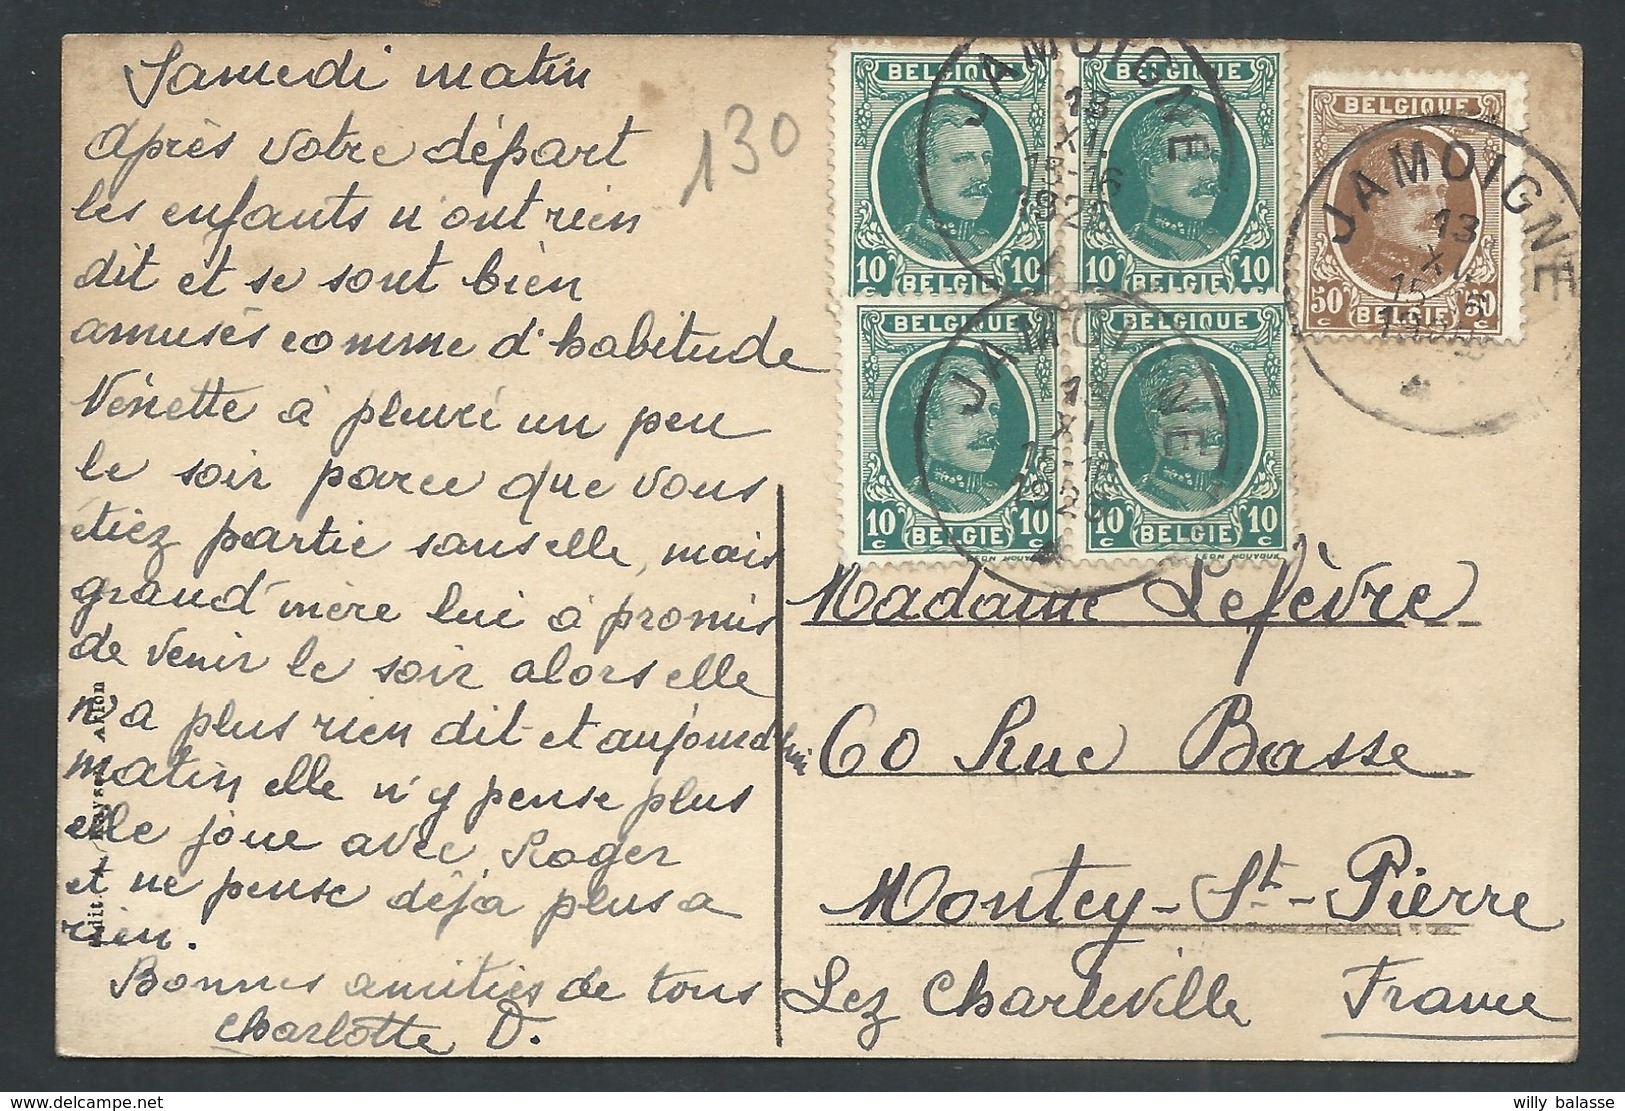 Samedi matin
après votre départ
les enfants n'ont rien
dit et se sont bien
amusés comme d'habitude
Nénette à pleuré un peu
le soir parce que vous
étiez partie sans elle, mais
grand'mère lui à promis
de venir le soir alors elle
n'a plus rien dit et aujourd'hui
matin elle n'y pense plus
elle joue avec Roger
et ne pense déjà plus a
rien.
Bonnes amitiés de tous
Charlotte D.
130
BELGIQUE
10 c 10 c
BELGIE
BELGIQUE
10 c 10 c
BELGIE
BELGIQUE
10 c 10 c
BELGIE
BELGIQUE
10 c 10 c
BELGIE
LEON HOUYOUX
BELGIQUE
50 c 50 c
BELGIE
JAMOIGNE
13
XI
15-16
JAMOIGNE
13
XI
15-16
JAMOIGNE
13
XI
Madame Lefèvre
60 Rue Basse
Montcy-St-Pierre
Lez Charleville France
Arlon
willy balasse